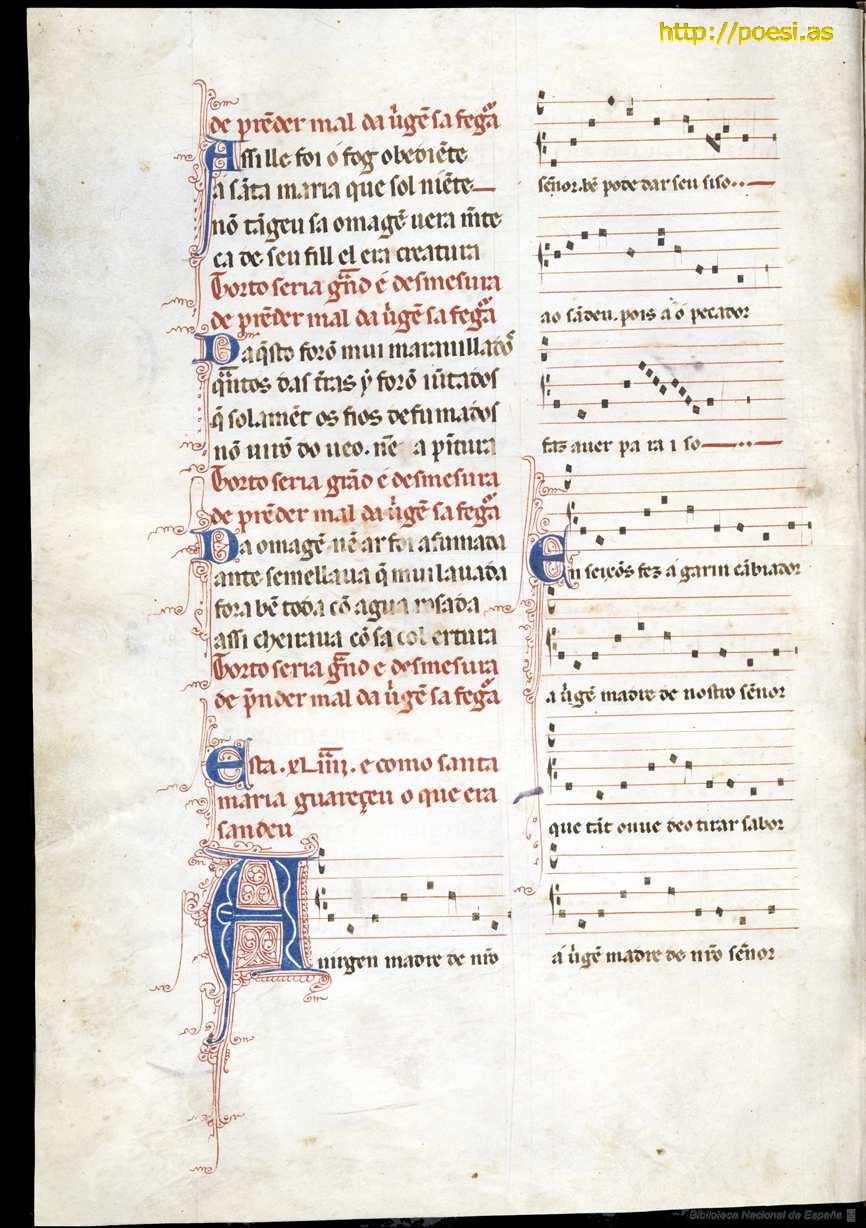 http://poesi.as
de prēder mal da uꝰgē sa fegᵃ
Assi lle foi o fog obediēte
a sāta maria que sol niēte
nō tāgeu sa omagē uera mīte
ca de seu fill el era creatura
Torto seria gᵃnd e desmesura
de prēder mal da uꝰgē sa fegᵃ
Da q̄sto forō mui marauillados
qᵃntos das t̄ras y forō iūtados
q̄ solamēt os fios defumados
nō uirō do ueo . nē a pītura
Torto seria grād e desmesura
de prēder mal da uꝰgē sa fegᵃ
Da omagē nē ar foi afumada
ante semellaua q̄ mui lauada
fora bē toda cō agua rosada
assi cheiraua cō sa cobertura
Torto seria gᵃnd e desmesura
de p̄nder mal da uꝰgē sa fegᵃ
Esta . xLiiii . e como santa
maria guareçeu o que era
sandeu
A uirgen madre de nr̄o
sēnor . bē pode dar seu siso
ao sādeu . pois a o pecador
faz auer pa ra i so
En seixōs fez a garin cābiador
a uꝰgē madre de nostro sēnor
que tāt ouue deo tirar sabor
a uꝰgē madre de nr̄o sēnor
Biblioteca Nacional de España